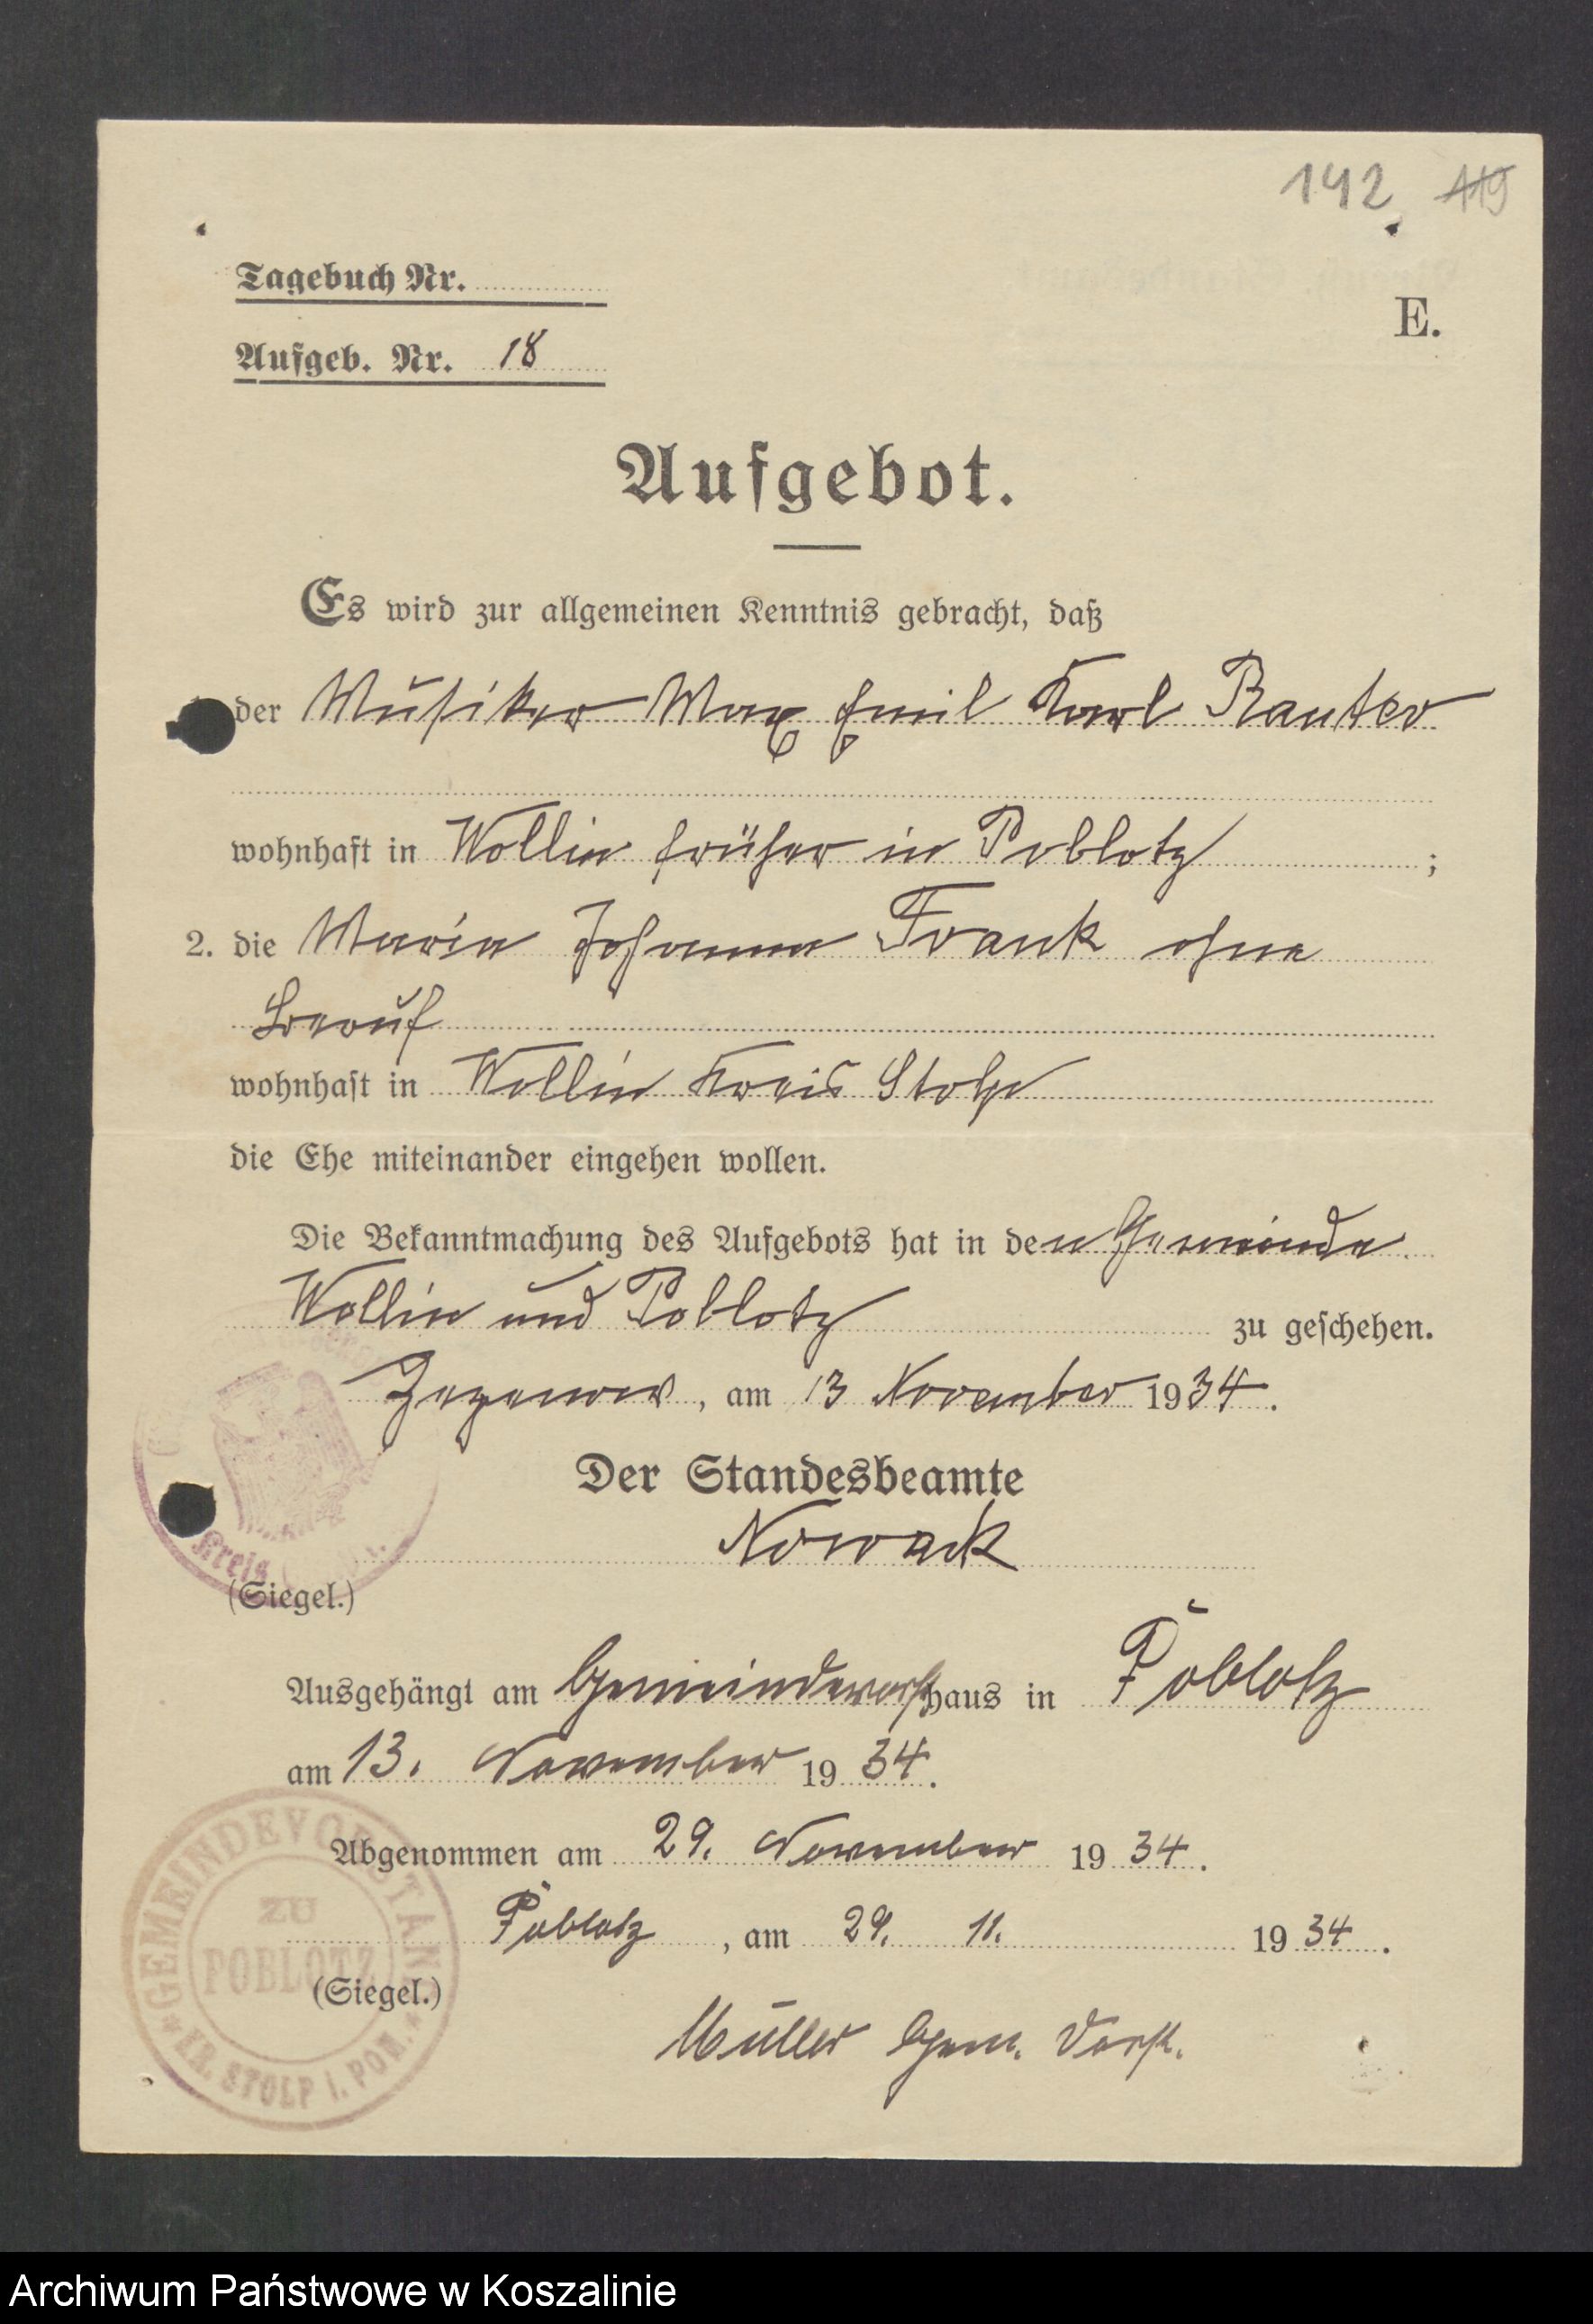 142 119
Tagebuch Nr.
E.
Aufgeb. Nr. 18
Aufgebot.
Es wird zur allgemeinen Kenntnis gebracht, daß
der Musiker Max Emil Karl Rauter
wohnhaft in Wollin früher in Poblotz ;
2. die Maria Johanna Frank ohne
Beruf
wohnhaft in Wollin Kreis Stolp
die Ehe miteinander eingehen wollen.
Die Bekanntmachung des Aufgebots hat in den Gemeinde
Wollin und Poblotz zu geschehen.
Zezenow, am 13 November 1934.
Der Standesbeamte
Nowack
Kreis
(Siegel.)
Ausgehängt am Gemeindevorst haus in Poblotz
am 13. November 1934.
Abgenommen am 29. November 1934.
Poblotz, am 29. 11. 1934.
(Siegel.)
GEMEINDEVORSTAND
ZU
POBLOTZ
* KR. STOLP i. POM. *
Müller Gem. Vorst.
Archiwum Państwowe w Koszalinie